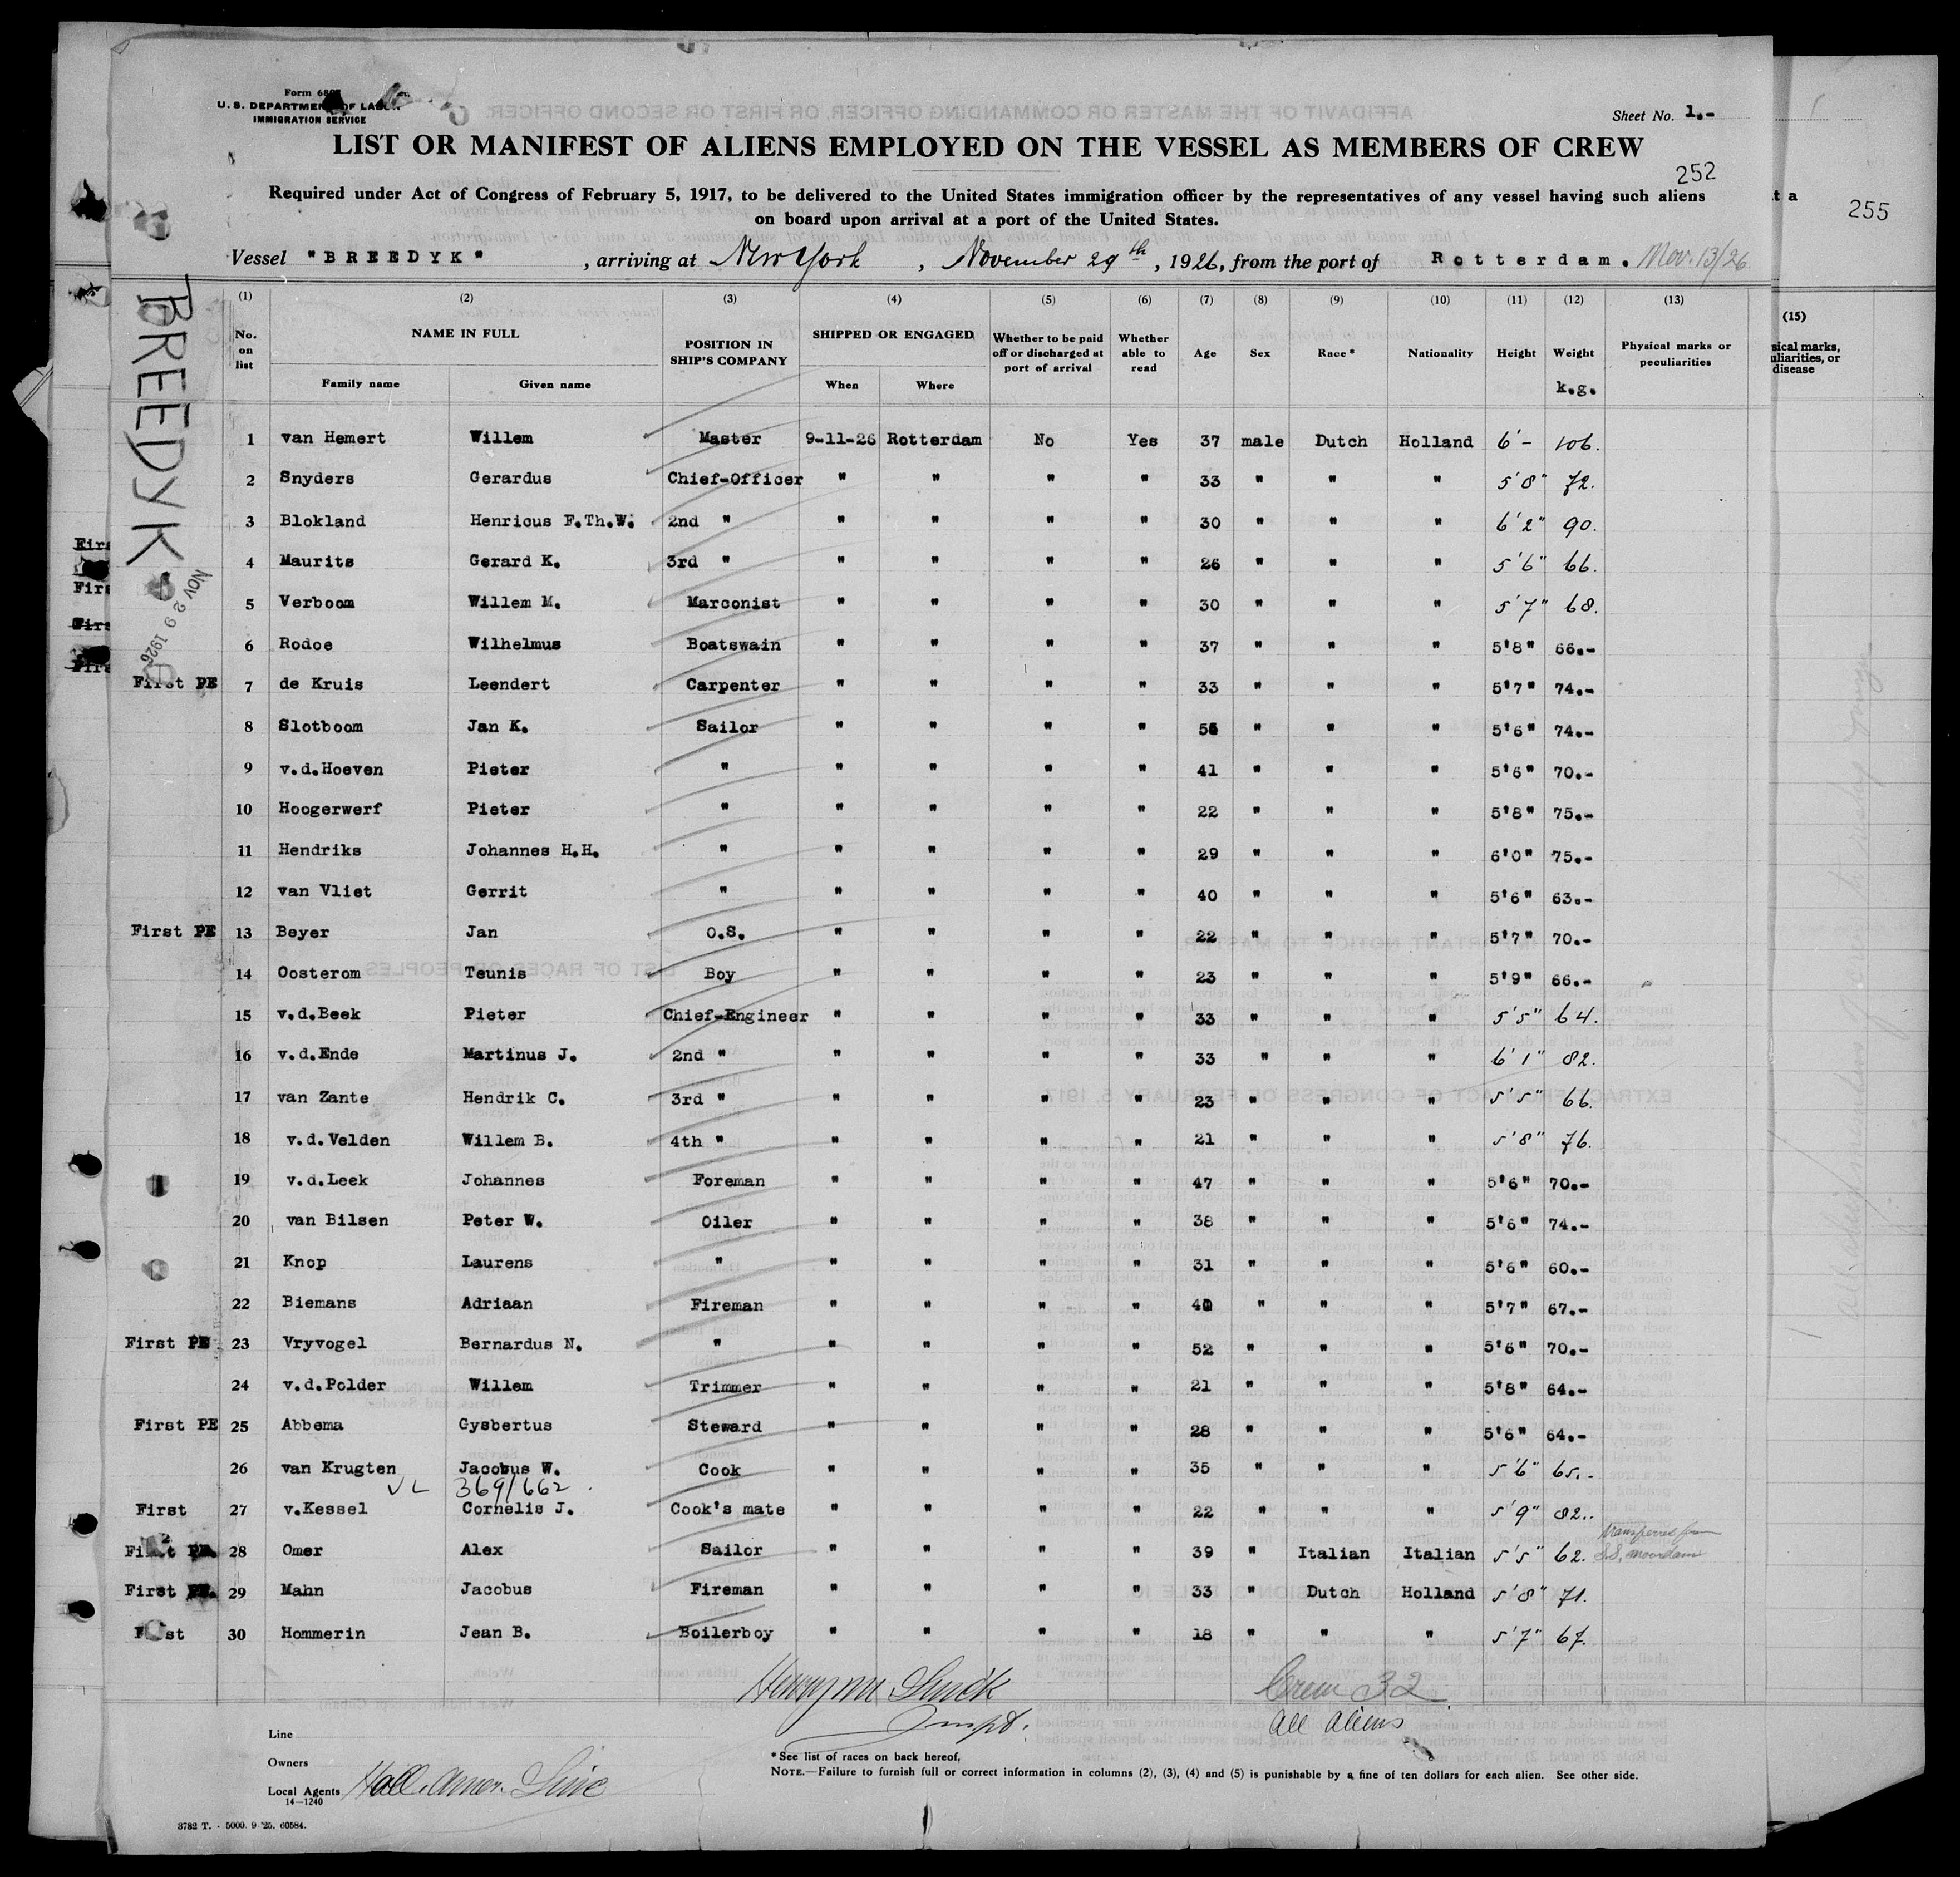 Form 680
U. S. DEPARTMENT OF LABOR
IMMIGRATION SERVICE
Sheet No. 1.-
LIST OR MANIFEST OF ALIENS EMPLOYED ON THE VESSEL AS MEMBERS OF CREW
252
Required under Act of Congress of February 5, 1917, to be delivered to the United States immigration officer by the representatives of any vessel having such aliens
on board upon arrival at a port of the United States.
255
Vessel "BREEDYK" , arriving at New York , November 29th , 1926, from the port of Rotterdam. Nov. 13/26
BREEDYK
NOV 29 1926
(1) (2) (3) (4) (5) (6) (7) (8) (9) (10) (11) (12) (13)
(15)
No. on list NAME IN FULL POSITION IN SHIP'S COMPANY SHIPPED OR ENGAGED Whether to be paid off or discharged at port of arrival Whether able to read Age Sex Race* Nationality Height Weight Physical marks or peculiarities
Family name Given name When Where k.g.
1 van Hemert Willem Master 9-11-26 Rotterdam No Yes 37 male Dutch Holland 6'- 106.
2 Snyders Gerardus Chief-Officer " " " " 33 " " " 5'8" 72.
3 Blokland Henricus F.Th.W. 2nd " " " " " 30 " " " 6'2" 90.
4 Maurits Gerard K. 3rd " " " " " 26 " " " 5'6" 66.
5 Verboom Willem M. Marconist " " " " 30 " " " 5'7" 68.
6 Rodoe Wilhelmus Boatswain " " " " 37 " " " 5'8" 66.-
First PE 7 de Kruis Leendert Carpenter " " " " 33 " " " 5'7" 74.-
8 Slotboom Jan K. Sailor " " " " " " " 5'6" 74.-
9 v.d.Hoeven Pieter " " " " " 41 " " " 5'6" 70.-
10 Hoogerwerf Pieter " " " " " 22 " " " 5'8" 75.-
11 Hendriks Johannes H.H. " " " " " 29 " " " 6'0" 75.-
12 van Vliet Gerrit " " " " " 40 " " " 5'6" 63.-
First PE 13 Beyer Jan O.S. " " " " 22 " " " 5'7" 70.-
14 Oosterom Teunis Boy " " " " 23 " " " 5'9" 66.-
15 v.d.Beek Pieter Chief-Engineer " " " " 33 " " " 5'5" 64.
16 v.d.Ende Martinus J. 2nd " " " " " 33 " " " 6'1" 82.
17 van Zante Hendrik C. 3rd " " " " " 23 " " " 5'5" 66.
18 v.d.Velden Willem B. 4th " " " " " 21 " " " 5'8" 76.
19 v.d.Leek Johannes Foreman " " " " 47 " " " 5'6" 70.-
20 van Bilsen Peter W. Oiler " " " " 38 " " " 5'6" 74.-
21 Knop Laurens " " " " " 31 " " " 5'6" 60.-
22 Biemans Adriaan Fireman " " " " " " " 5'7" 67.-
First PE 23 Vryvogel Bernardus N. " " " " " 52 " " " 5'6" 70.-
24 v.d.Polder Willem Trimmer " " " " 21 " " " 5'8" 64.-
First PE 25 Abbema Gysbertus Steward " " " " 28 " " " 5'6" 64.-
26 van Krugten Jacobus W. Cook " " " " 35 " " " 5'6" 65.-
VL 369/662
First 27 v.Kessel Cornelis J. Cook's mate " " " " 22 " " " 5'9" 82.
First PE. 28 Omer Alex Sailor " " " " 39 " Italian Italian 5'5" 62. transferred from S.S.
First PE. 29 Mahn Jacobus Fireman " " " " 33 " Dutch Holland 5'8" 71.
First 30 Hommerin Jean B. Boilerboy " " " " 18 " " " 5'7" 67.
Crew 32
all aliens
Line
Owners
Local Agents Holl. Amer. Line
14—1240
*See list of races on back hereof.
NOTE.—Failure to furnish full or correct information in columns (2), (3), (4) and (5) is punishable by a fine of ten dollars for each alien. See other side.
3782 T. - 5000. 9-'25. 60584.